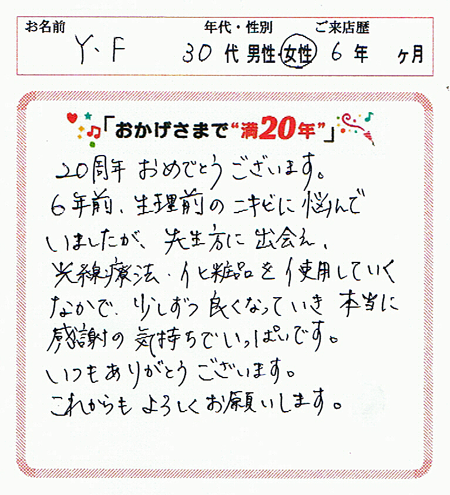 お名前 年代・性別 ご来店歴
Y・F 30代 男性・女性 6年 ヶ月
「おかげさまで“満20年”」
20周年 おめでとうございます。
6年前、生理前のニキビに悩んで
いましたが、先生方に出会え、
光線療法・化粧品を使用していく
なかで、少しずつ良くなっていき 本当に
感謝の気持ちでいっぱいです。
いつもありがとうございます。
これからもよろしくお願いします。